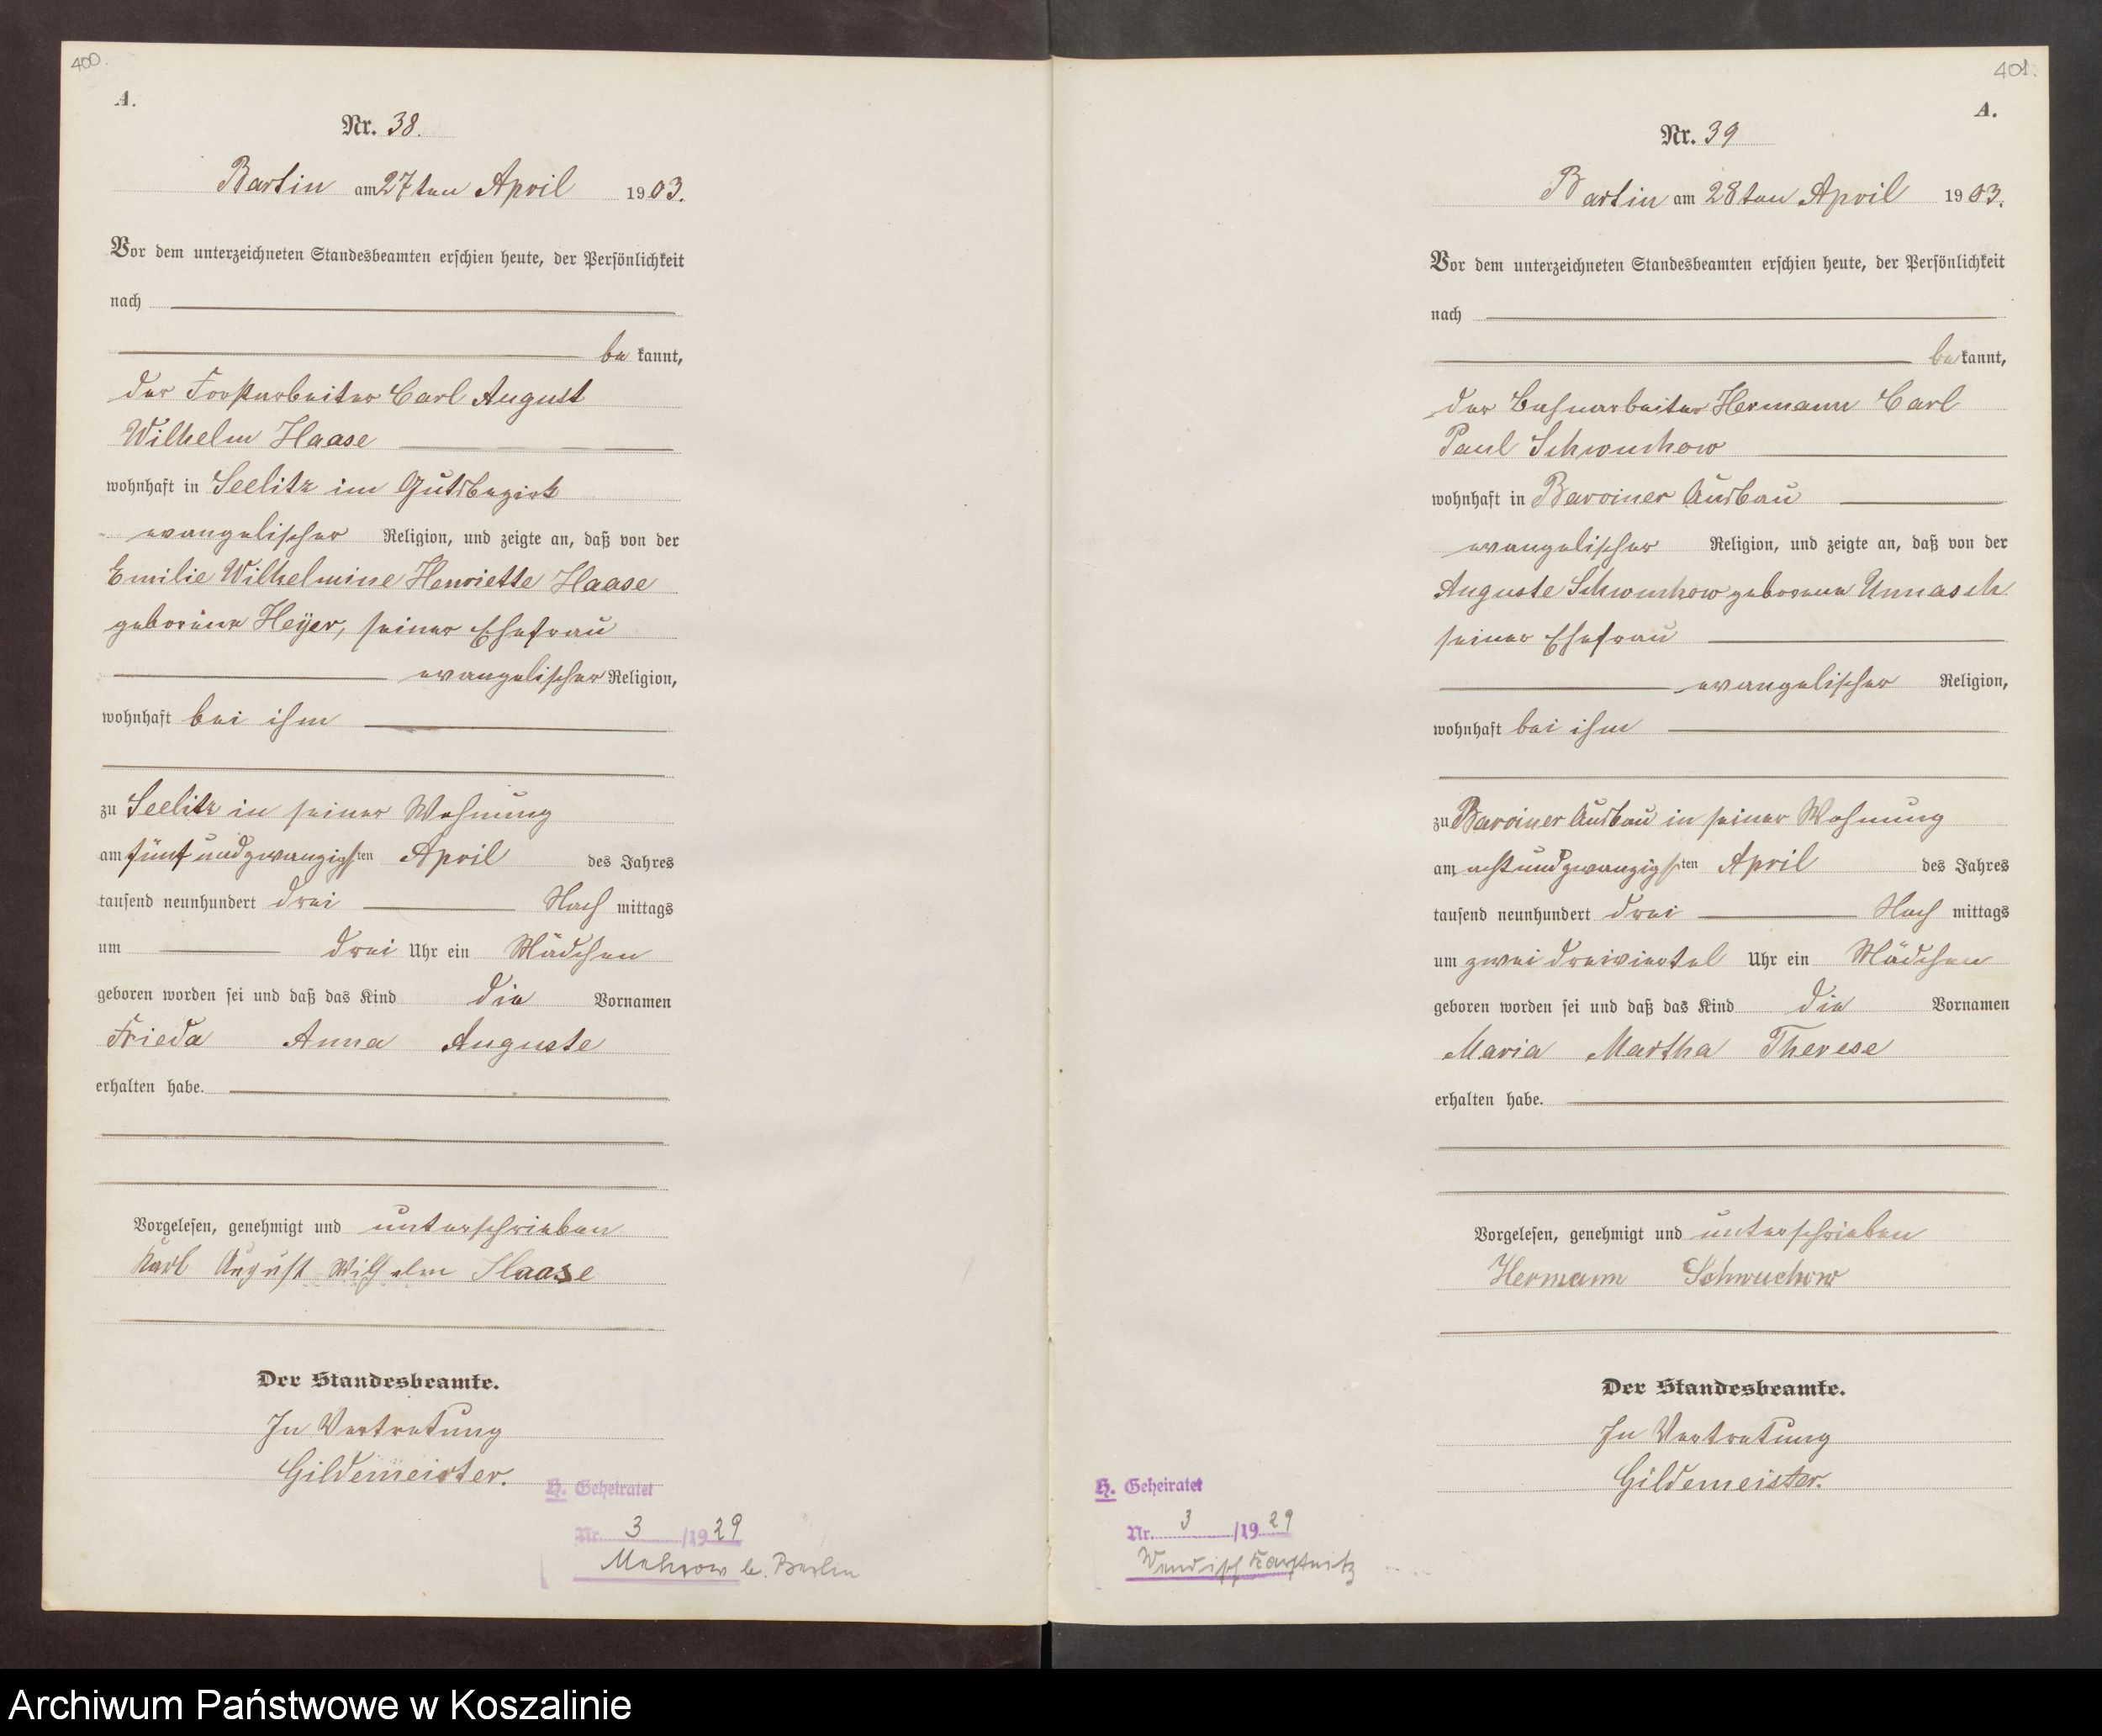 400.
A.
Nr. 38.
Bartin am 27ten April 1903.
Vor dem unterzeichneten Standesbeamten erschien heute, der Persönlichkeit
nach
be kannt,
der Forstarbeiter Carl August
Wilhelm Haase
wohnhaft in Seelitz im Gutsbezirk
evangelischer Religion, und zeigte an, daß von der
Emilie Wilhelmine Henriette Haase
geborene Heyer, seiner Ehefrau
evangelischer Religion,
wohnhaft bei ihm
zu Seelitz in seiner Wohnung
am fünfundzwanzigsten April des Jahres
tausend neunhundert drei Nach mittags
um drei Uhr ein Mädchen
geboren worden sei und daß das Kind die Vornamen
Frieda Anna Auguste
erhalten habe.
Vorgelesen, genehmigt und unterschrieben
Karl August Wilhelm Haase
Der Standesbeamte.
In Vertretung
Gildemeister.
H. Geheiratet
Nr. 3 /1929
b. Berlin
401.
A.
Nr. 39
Bartin am 28ten April 1903.
Vor dem unterzeichneten Standesbeamten erschien heute, der Persönlichkeit
nach
be kannt,
der Bahnarbeiter Hermann Carl
Paul Schwuchow
wohnhaft in Barviner Ausbau
evangelischer Religion, und zeigte an, daß von der
Auguste Schwuchow geborene Unnasch
seiner Ehefrau
evangelischer Religion,
wohnhaft bei ihm
zu Barviner Ausbau in seiner Wohnung
am achtundzwanzigsten April des Jahres
tausend neunhundert drei Nach mittags
um zwei dreiviertel Uhr ein Mädchen
geboren worden sei und daß das Kind die Vornamen
Maria Martha Therese
erhalten habe.
Vorgelesen, genehmigt und unterschrieben
Hermann Schwuchow
Der Standesbeamte.
In Vertretung
Gildemeister.
H. Geheiratet
Nr. 3 /1929
Wendisch Karstnitz
Archiwum Państwowe w Koszalinie